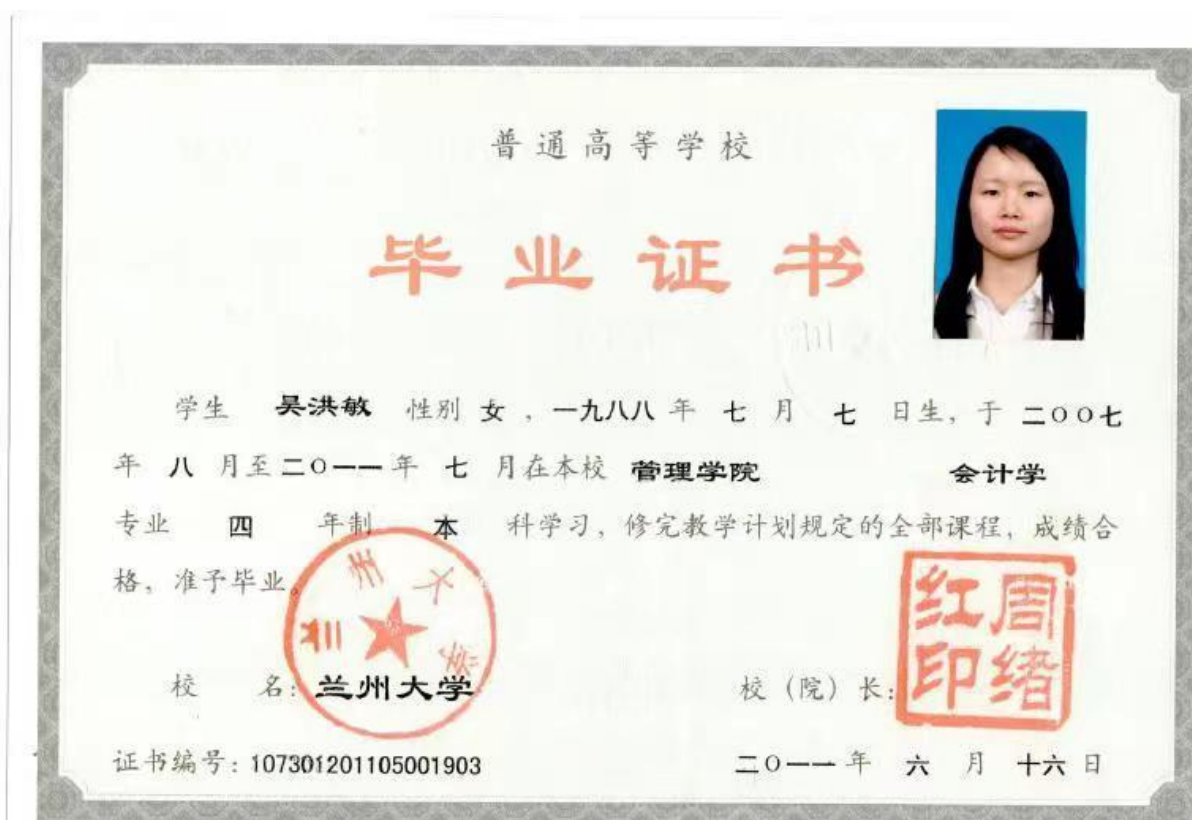 普通高等学校
毕业证书
学生 吴洪敏 性别 女 , 一九八八 年 七 月 七 日生, 于 二〇〇七
年 八 月至 二〇一一 年 七 月在本校 管理学院 会计学
专业 四 年制 本 科学习, 修完教学计划规定的全部课程, 成绩合
格, 准予毕业。
兰州大学
校 名: 兰州大学
校 (院) 长:
周绪红印
证书编号: 107301201105001903
二〇一一 年 六 月 十六 日